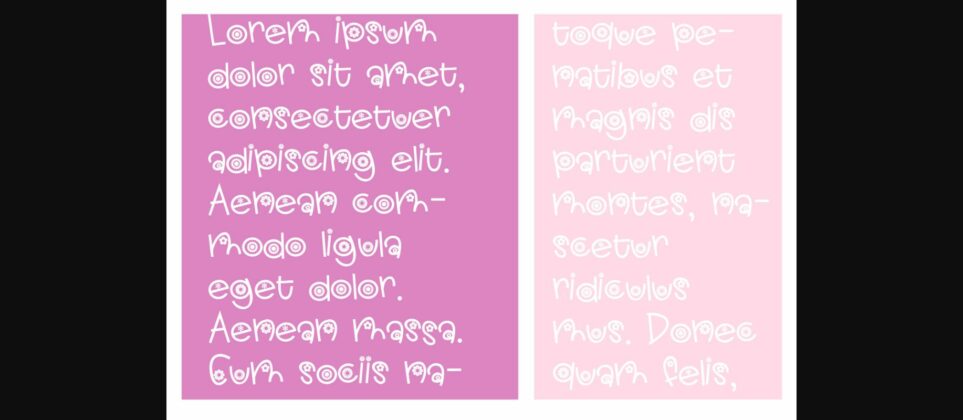 Lorem ipsum
dolor sit amet,
consectetuer
adipiscing elit.
Aenean com-
modo ligula
eget dolor.
Aenean massa.
Cum sociis na-
toque pe-
natibus et
magnis dis
parturient
montes, na-
scetur
ridiculus
mus. Donec
quam felis,